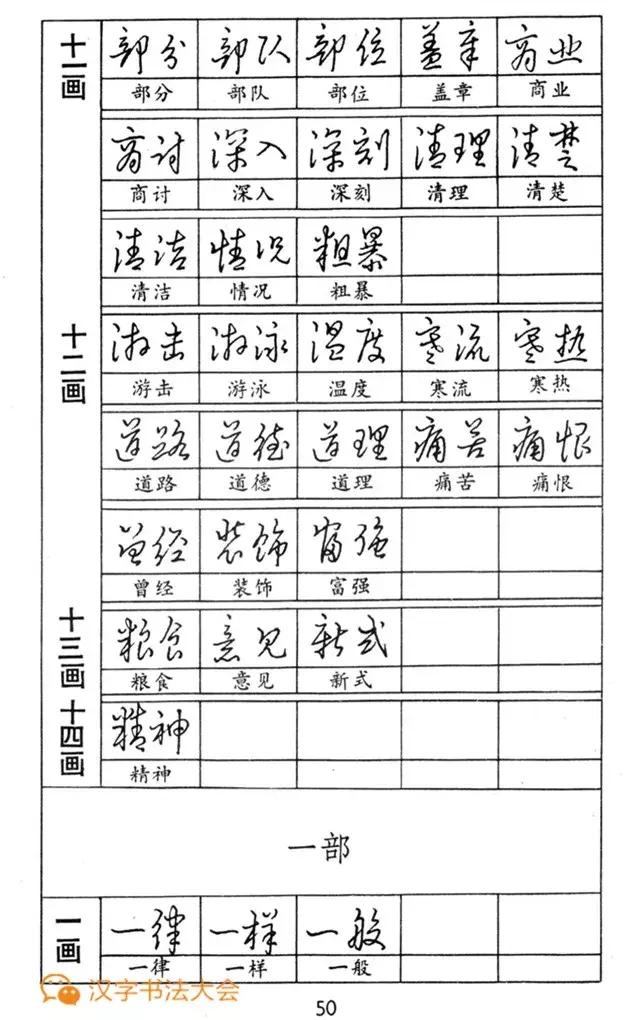 十一画
部分 部队 部位 盖章 商业
部分 部队 部位 盖章 商业
商讨 深入 深刻 清理 清楚
商讨 深入 深刻 清理 清楚
清洁 情况 粗暴
清洁 情况 粗暴
十二画
游击 游泳 温度 寒流 寒热
游击 游泳 温度 寒流 寒热
道路 道德 道理 痛苦 痛恨
道路 道德 道理 痛苦 痛恨
曾经 装饰 富强
曾经 装饰 富强
十三画
粮食 意见 新式
粮食 意见 新式
十四画
精神
精神
一部
一画
一律 一样 一般
一律 一样 一般
汉字书法大会
50